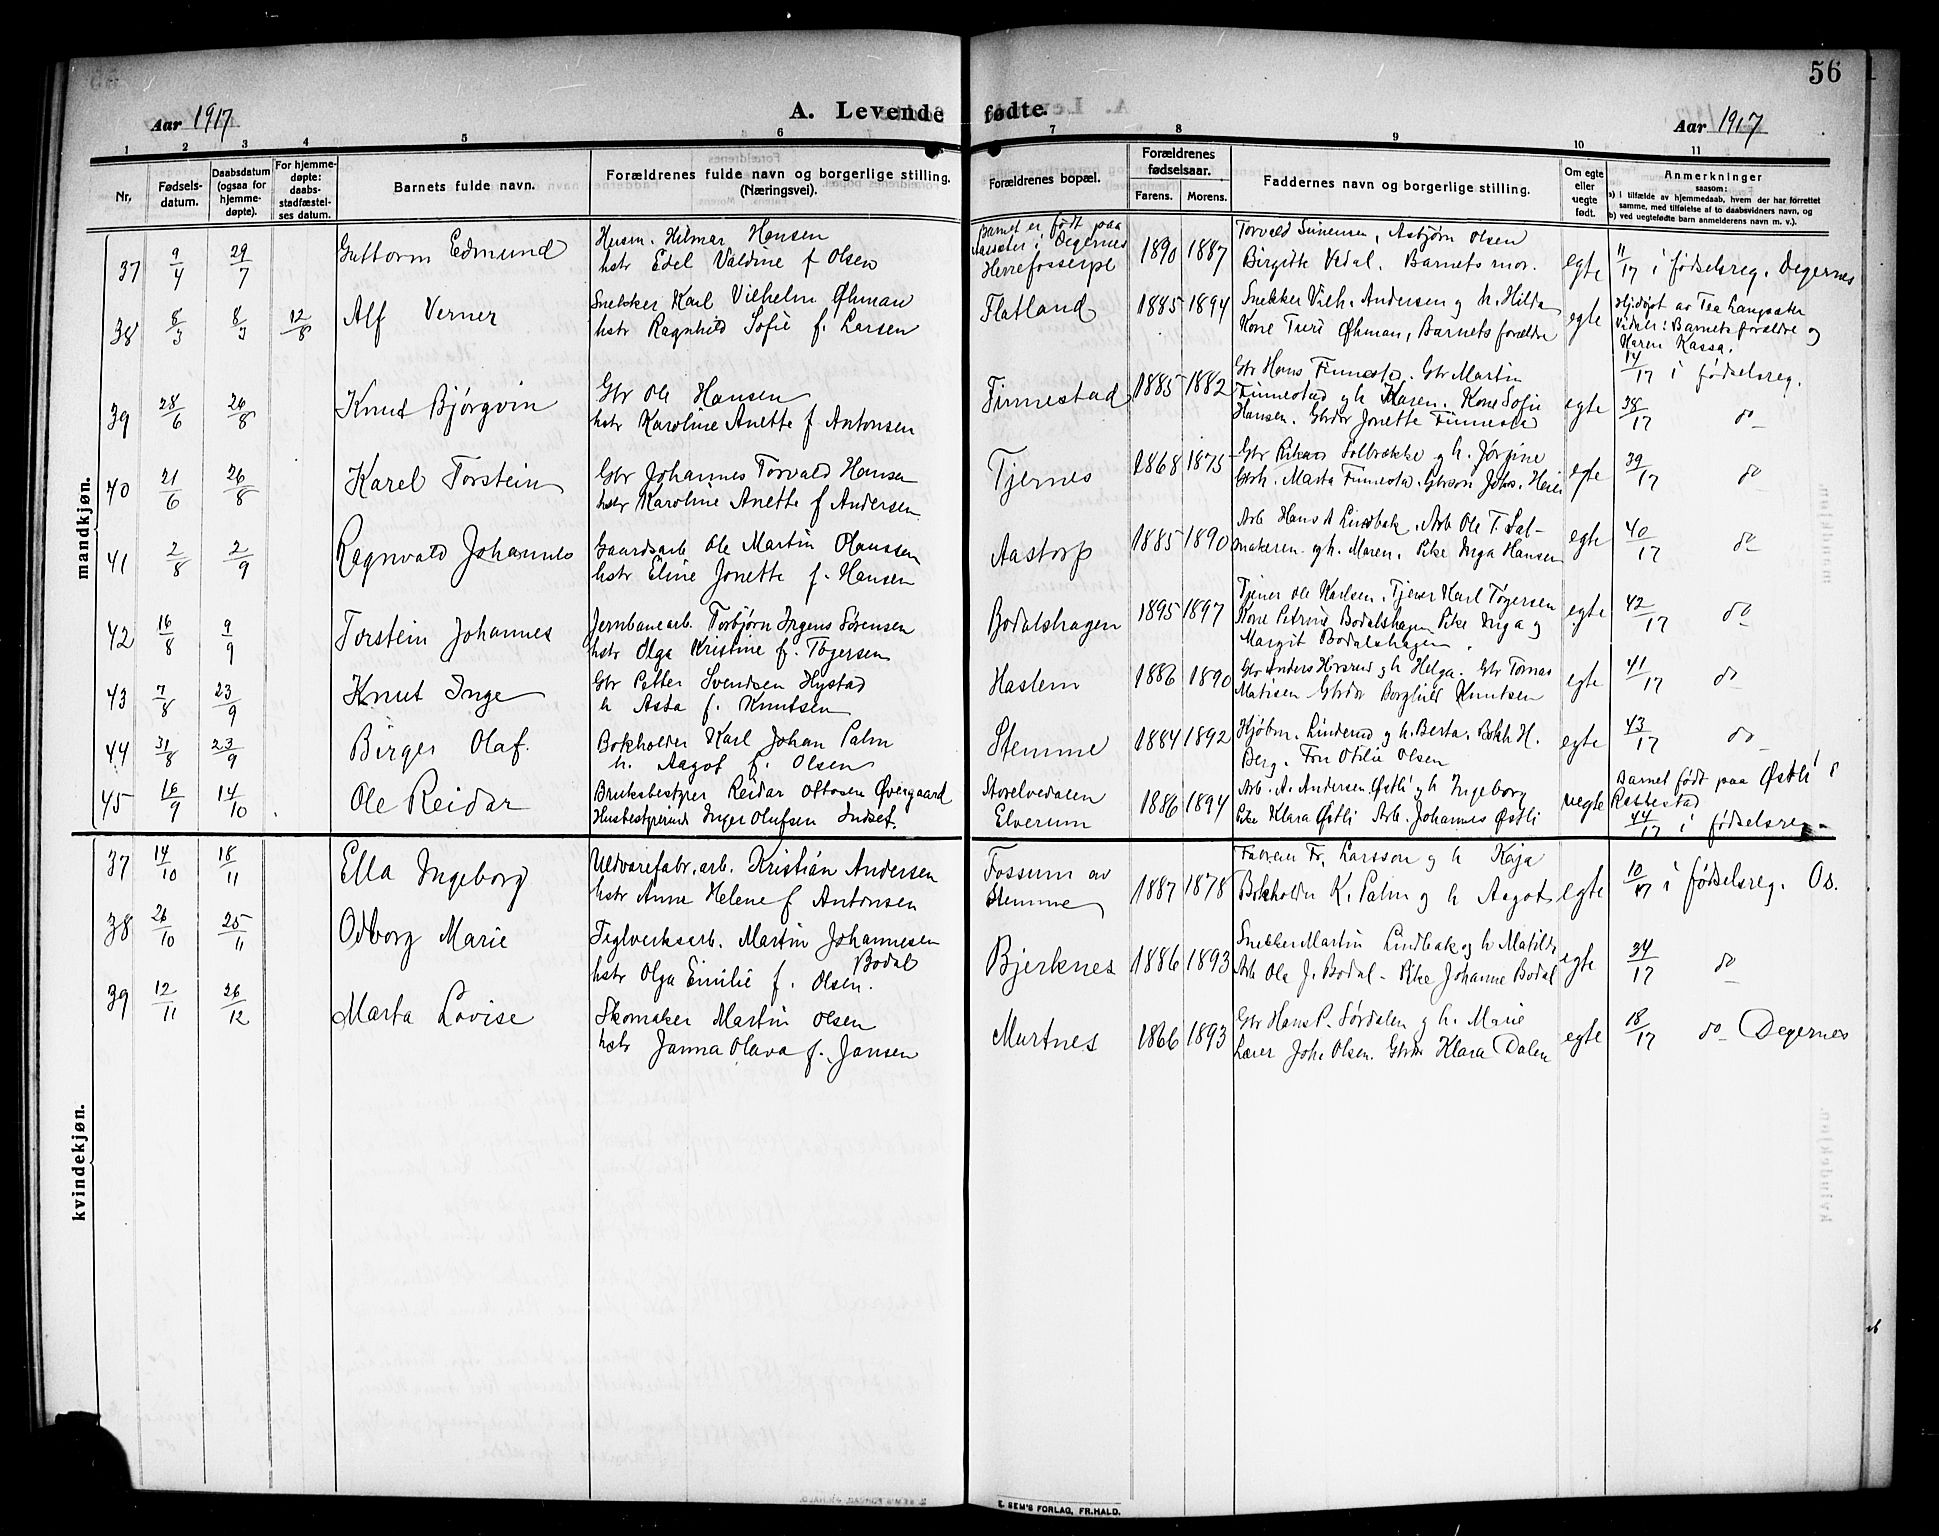 56
Aar 1917
A. Levende fødte.
Aar 1917
1 2 3 4 5 6 7 8 9 10 11
Nr.
Fødsels-
datum.
Daabsdatum
(ogsaa for
hjemme-
døpte).
For hjemme-
døpte:
daabs-
stadfæstel-
ses datum.
Barnets fulde navn.
Forældrenes fulde navn og borgerlige stilling.
(Næringsvei).
Forældrenes bopæl.
Forældrenes
fødselsaar.
Farens. Morens.
Faddernes navn og borgerlige stilling.
Om egte
eller
uegte
født.
Anmerkninger
saasom:
a) i tilfælde av hjemmedaab, hvem der har forrettet
samme, med tilføielse af to daabsvidners navn, og
b) ved uegtefødte barn anmelderens navn m. v.).
mandkjøn.
37 9/4 29/7 Guttorm Edmund
Husm. Hilmar Hansen
hstr Edel Valdine f Olsen
Barnet er født paa
i Degernes
Herrefosserpt
1890 1887
Torvald Simensen, Asbjørn Olsen
Birgitte Vedal. Barnets mor.
egte
11/17 i fødselsreg. Degernes
38 8/3 8/3 12/8 Alf Verner
Snekker Karl Vilhelm Øhman
hstr Ragnhild Sofie f. Larsen
Flatland
1885 1894
Snekker Vilh. Andersen g h. Hilda
Kone Turi Øhman, Barnets forældre
egte
Hjdøpt av Tea Langsæter
Vidner: Barnets forældre og
Karen Kassa.
14/17 i fødselsreg.
39 28/6 26/8 Knut Bjørgvin
Gbr Ole Hansen
hstr Karoline Anette f Antonsen
Finnestad
1885 1882
Gbr Hans Finnesta. Gbr Martin
Finnestad g h Karen. Kone Sofie
Hansen. Gbrdtr Jonette Finnesta
egte
38/17 do
40 21/6 26/8 Karel Torstein
Gbr Johannes Torvald Hansen
hstr Karoline Anette f Andersen
Tjernes
1868 1875
Gbr Rikard Solbrække g h. Jørgine
Gbrh. Marta Finnesta. Gbrsøn Johs. Heier
egte
39/17 do
41 2/8 2/9 Ragnvald Johannes
Gaardsarb Ole Martin Olaussen
hstr Eline Jonette f. Hansen
Aastorp
1885 1890
Arb Hans A Lindbak, Arb Ole T. Sal-
makeren. g h. Maren. Pike Inga Hansen
egte
40/17 do
42 16/8 9/9 Torstein Johannes
Jernbanearb. Torbjørn Jrgens Sørensen
hstr Olga Kristine f. Tøgersen
Bodalshagen
1895 1897
Tjener Ole Karlsen. Tjener Karl Tøgersen
Kone Petrine Bodalshagen Pike Inga og
Margit Bodalshagen.
egte
42/17 do
43 7/8 23/9 Knut Inge
Gbr Petter Svendsen Hystad
h Asta f. Knutsen
Haslem
1886 1890
Gbr Anders g h Helga. Gbr Tomas
Matisen Gbrdtr Borghild Knutsen
egte
41/17 do
44 31/8 23/9 Birger Olaf.
Bokholder Karl Johan Palm
h. Aagot f. Olsen
Stemme
1884 1892
Kjøbm. Linderud g h. Berta. Bokh H.
Berg. Frk Otilie Olsen
egte
43/17 do
45 16/9 14/10 Ole Reidar
Bruksbestyrer Reidar Ottosen Øvergaard
Husbestyrerinde Inger Olufsen Indset.
Storelvedalen
Elverum
1886 1894
Arb. A. Andersen Østli g h Ingeborg
Pike Klara Østli Arb. Johannes Østli
uegte
Barnet født paa Østli i
Rakkestad
44/17 i fødselsreg.
kvindekjøn.
37 14/10 18/11 Ella Ingeborg
Uldvarefabr.arb. Kristian Andersen
hstr Anne Helene f Antonsen
Fossum av
Stemme
1887 1878
Fr. Larsson g h Kaja
Bokholder K. Palm g h Aagot
egte
10/17 i fødselsreg. Os.
38 26/10 25/11 Odborg Marie
Teglverksarb. Martin Johannesen
Bodal
hstr Olga Emilie f. Olsen.
Bjerknes
1886 1893
Snekker Martin Lindbak g h Matilde
Arb Ole J. Bodal - Pike Johanne Bodal
egte
34/17 do
39 12/11 26/12 Marta Lovise
Skomaker Martin Olsen
hstr Janna Olava f. Jansen
Murtnes
1866 1893
Gbr Hans P. Sørdalen g h. Marie
Lærer Joh. Olsen. Gbrdtr Klara Dalen
egte
18/17 do Degernes
E. SEM'S FORLAG, FR.HALD.